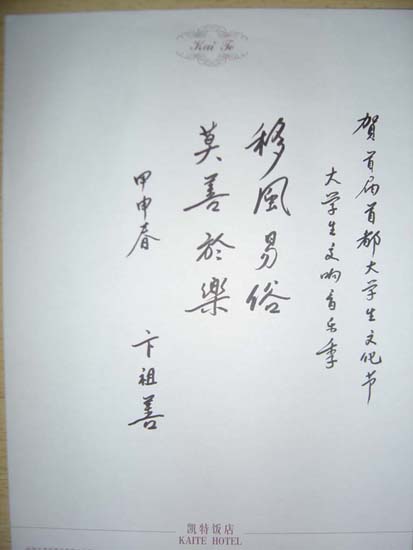 Kai Te
贺首届首都大学生文化节
大学生交响音乐季
移風易俗
莫善於樂
甲申春 卞祖善
凯特饭店
KAITE HOTEL